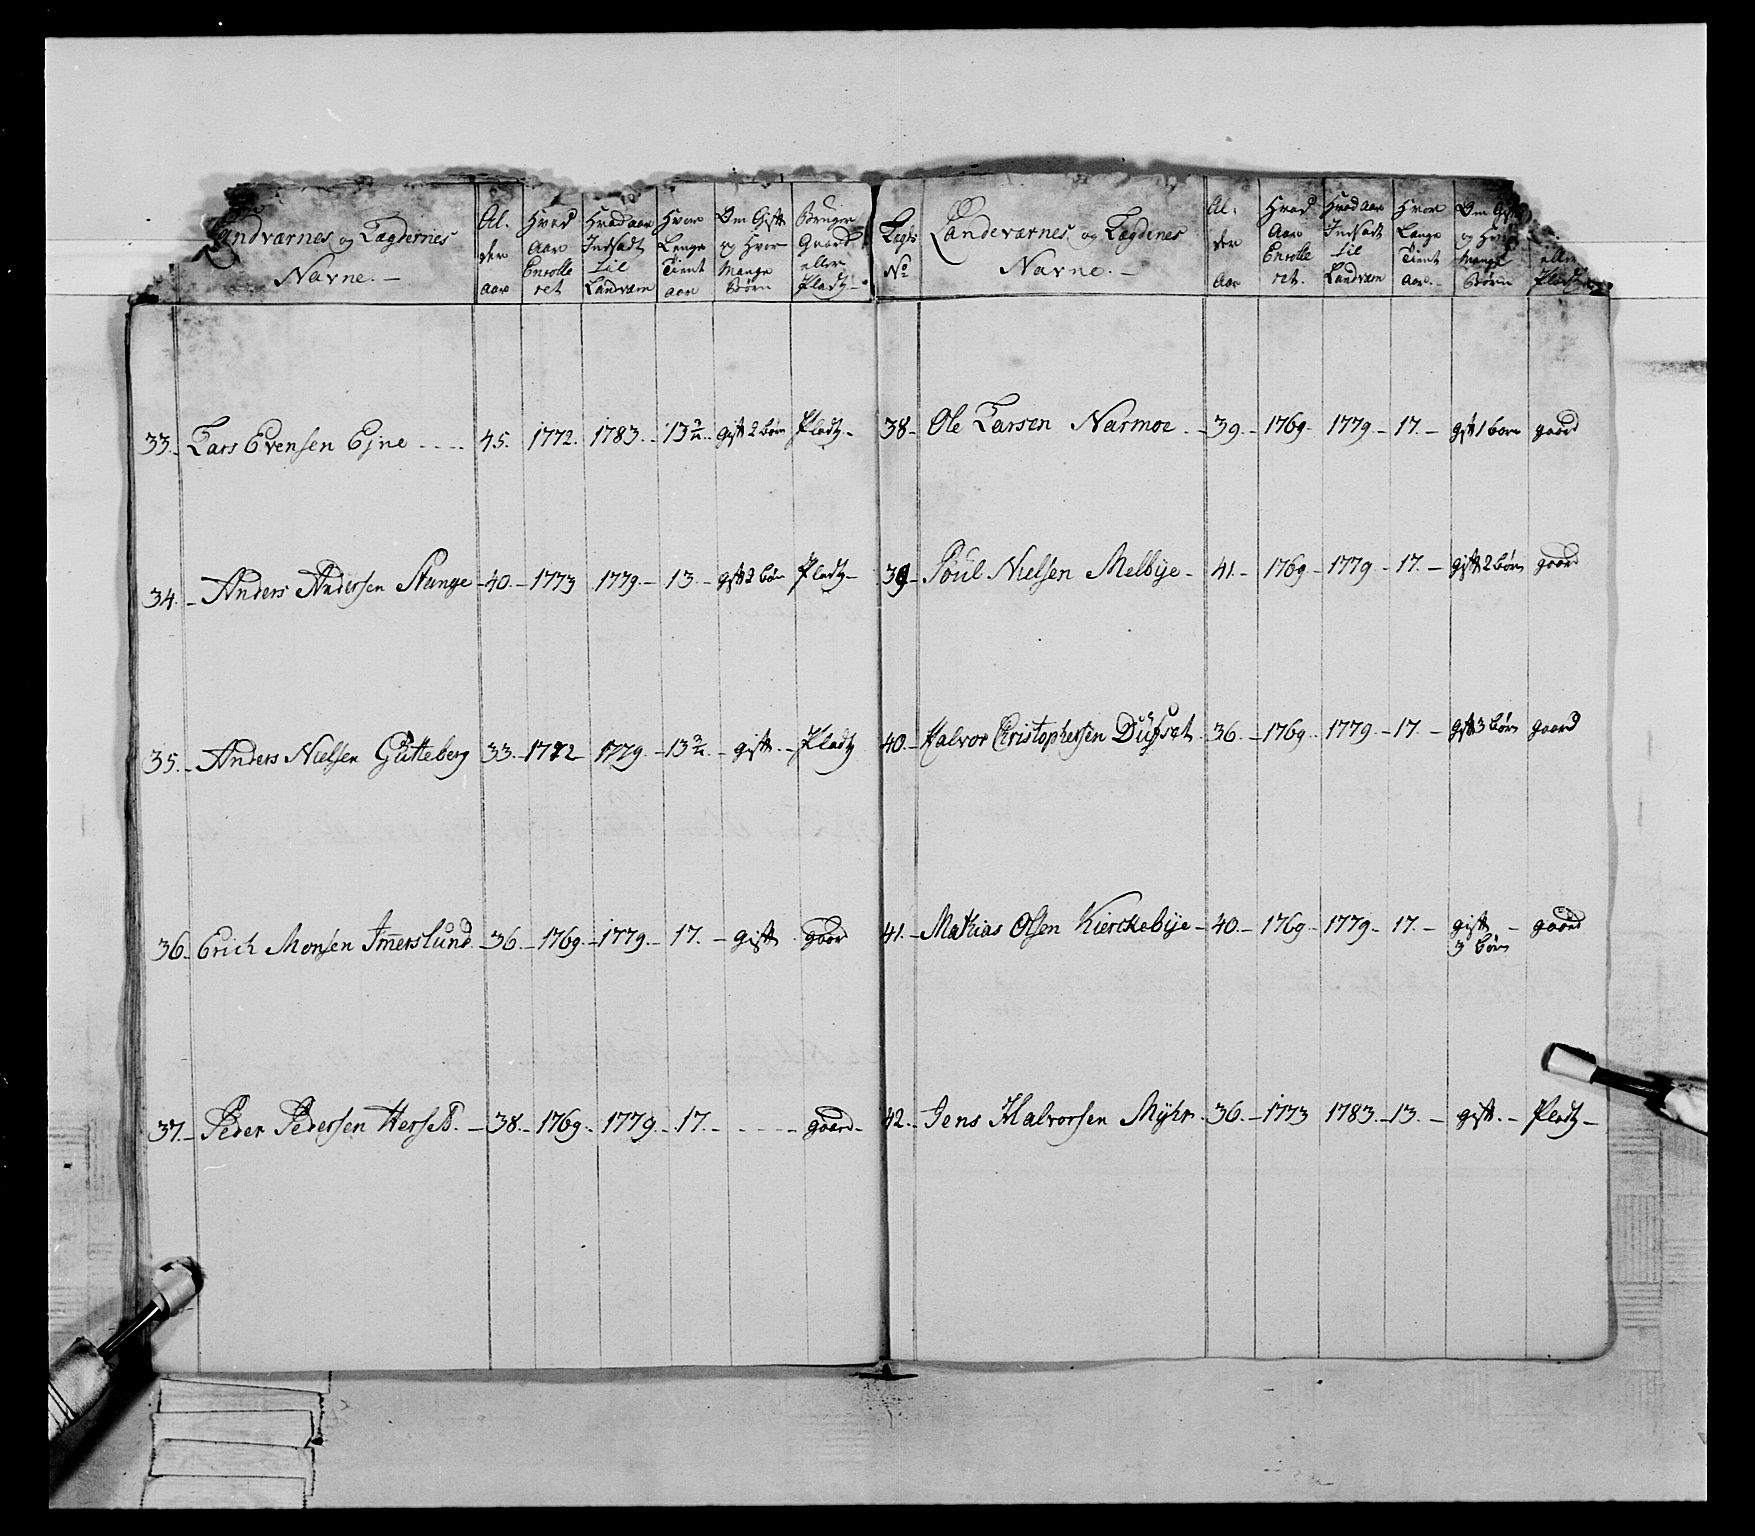 Landværnes og Lægdernes Navne. — | Al- der aar | Hvad Aar Enrolle ret | Hvad aar Indsadt til Landværn | Hvor Længe Tient aar | Om Gift og Hvor Mange Børn | Bruger Gaard eller Pladtz —
33. Lars Evensen Ejne - - - 45. 1772. 1783. - 13 2/4. gift 2 børn Pladtz —
34. — Anders Andersen Stange — 40. — 1773 1779. — 13. — gift 2 børn Pladtz —
35. — Anders Nielsen Gütteberg 33. — 1772 — 1779. — 13 2/4. — gift. — Pladtz
36. — Erich Monsen Im̅erslund. — 36. — 1769. — 1779. — 17. — gift. gaard
37. — Peder Pedersen Hersett. — 38. — 1769. — 1779. — 17. — - - - - gaard —
Legds No | Landeværnes og Lægdenes Navne. — | Al- der Aar | Hvad Aar Enrolle ret. | Hvad aar Indsadt til Landværn | Hvor Længe Tient aar. | Om Gift og Hvor Mange Børn | eller Pladtz
38. — Ole Larsen Narmoe. — 39. — 1769. 1779 — 17. — gift 1 barn gaard
39. — Poül Nielsen Melbÿe — 41. — 1769 — 1779 — 17. — gift 2 børn gaard
40. — Halvor Christophersen Düfset 36. — 1769. 1779. — 17. — gift 3 børn gaard
41. — Mathias Olsen Kierckebÿe — 40. — 1769 — 1779 — 17. — gift — gaard
3 børn
42. — Jens Halvorsen Mÿhr. 36. — 1773 1783. — 13. — gift. — Pladtz —